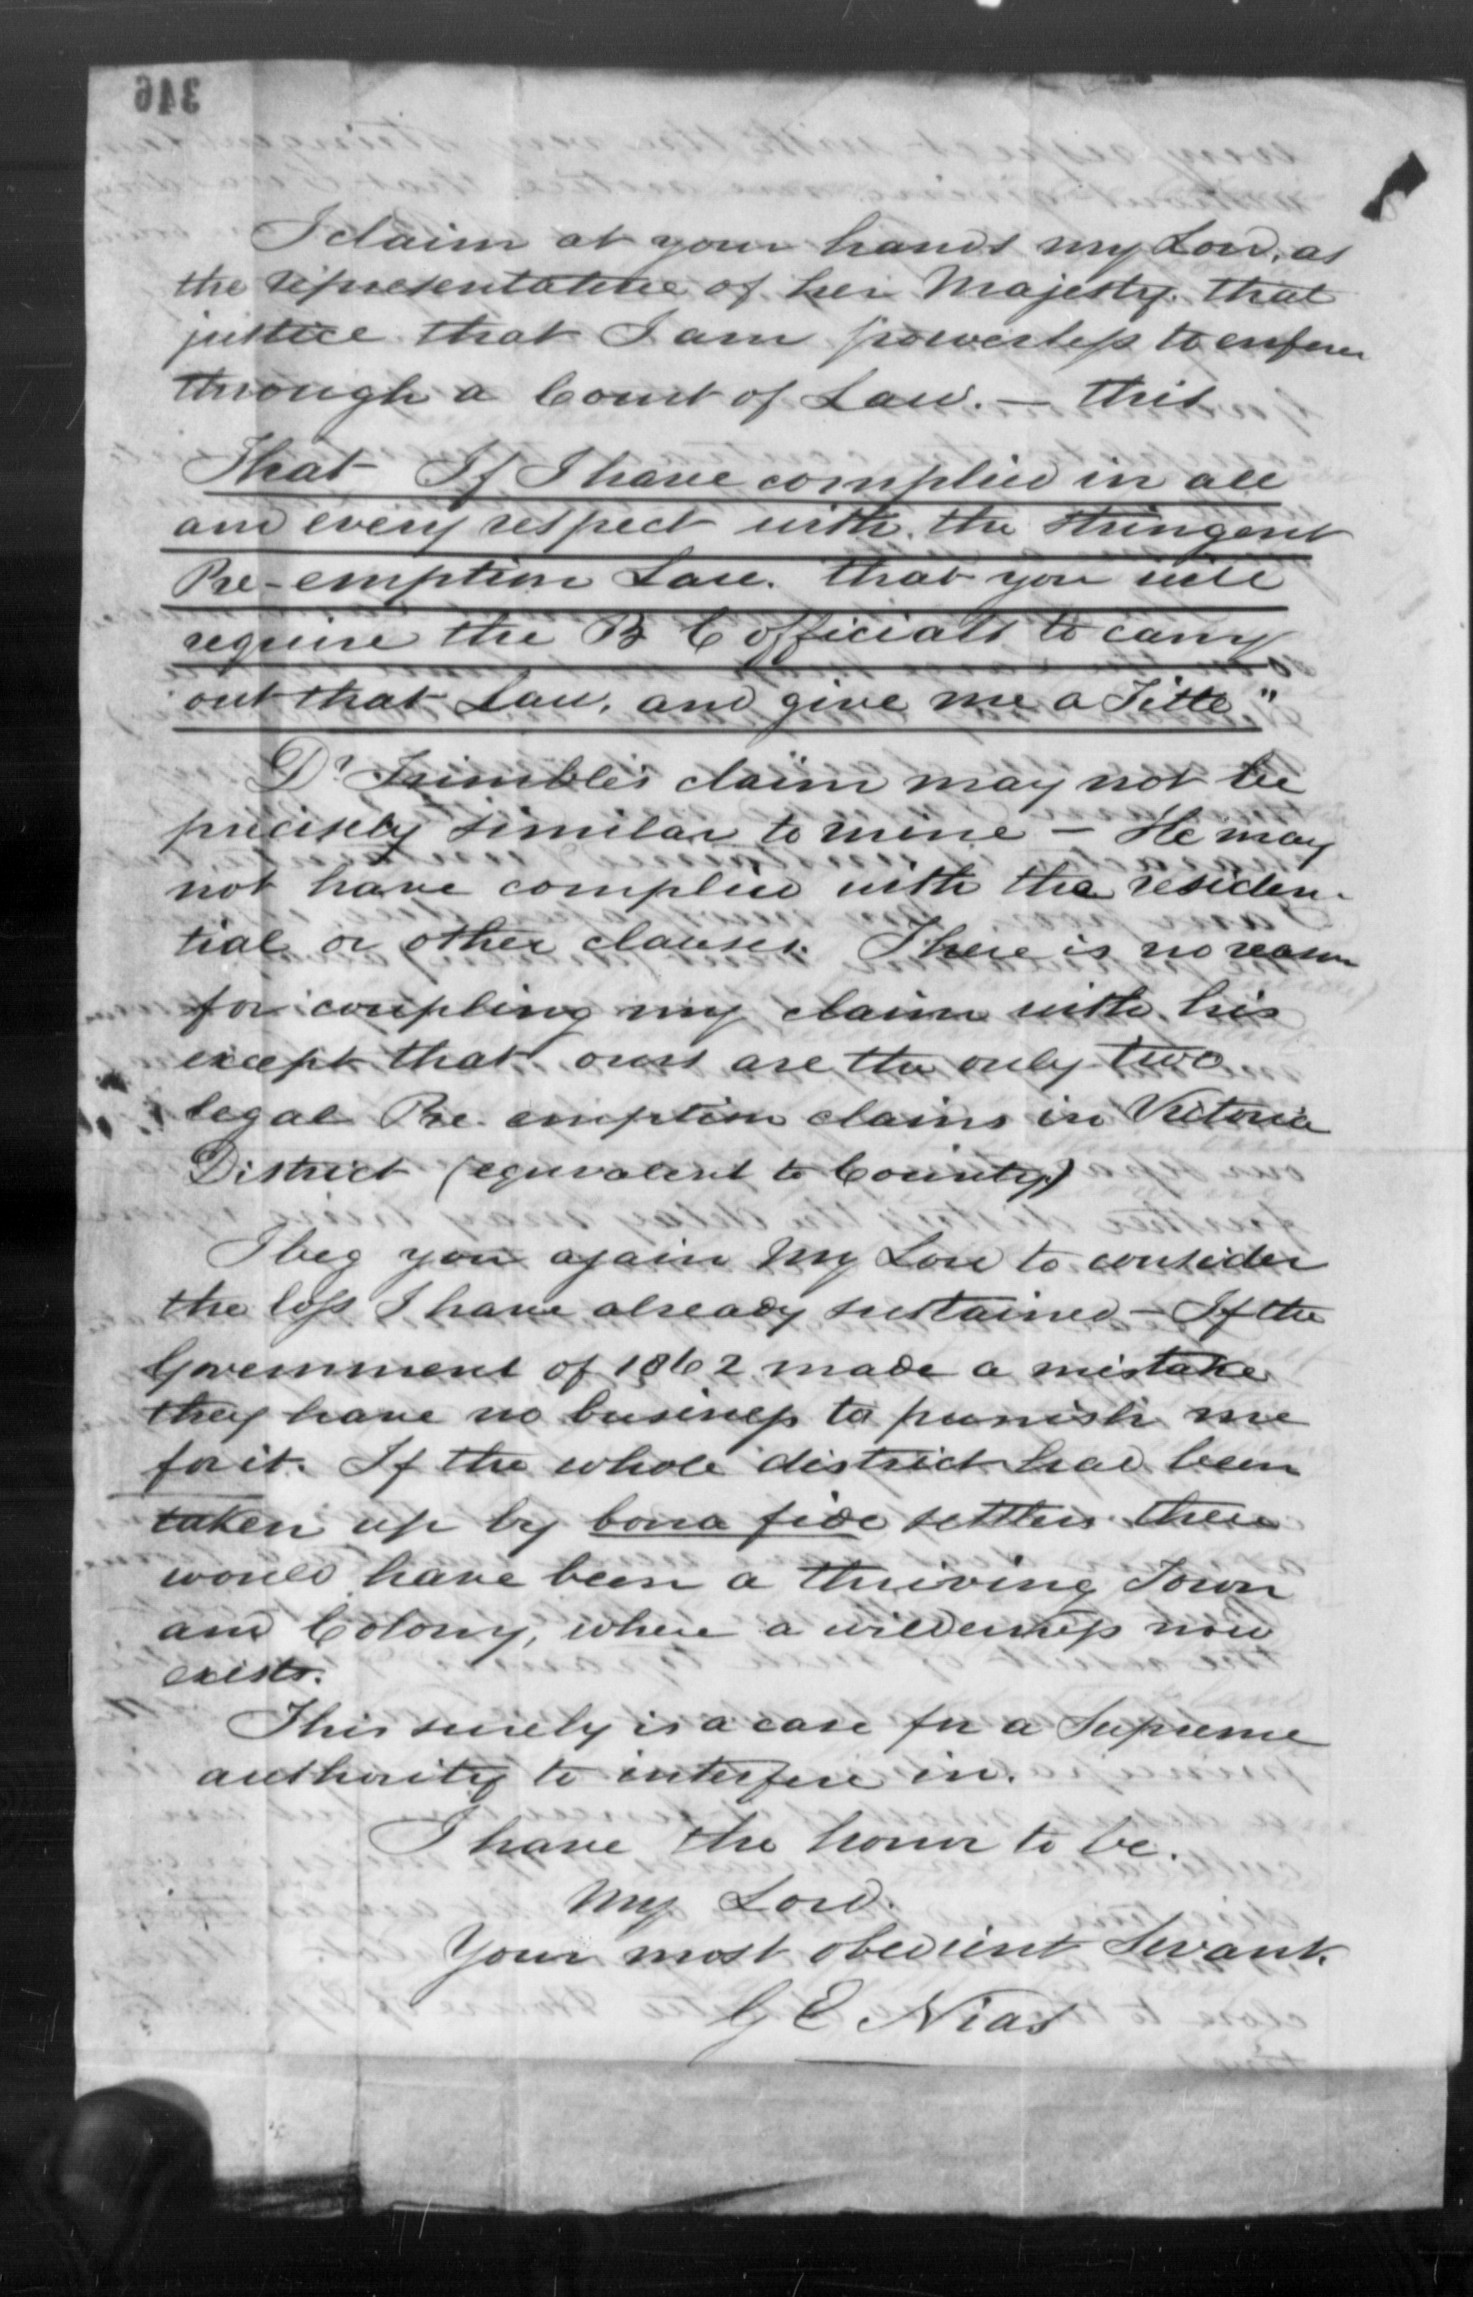 346
I claim at your hands my Lord, as
the representative of her Majesty that
justice that I am powerless to enforce
through a Court of Law. — this
That If I have complied in all
and every respect with the stringent
Pre-emption Law. that you will
require the B C officials to carry
out that Law, and give me a Title"
Dr Trimble's claim may not be
precisely similar to mine — He may
not have complied with the residen-
tial or other clauses. There is no reason
for coupling my claim with his
except that ours are the only two
legal Pre-emption claims in Victoria
District (equivalent to County)
I beg you again My Lord to consider
the loss I have already sustained — If the
Government of 1862 made a mistake
they have no business to punish me
for it. If the whole district had been
taken up by bona fide settlers there
would have been a thriving Town
and Colony, where a wilderness now
exists.
This surely is a case for a Supreme
authority to interfere in.
I have the honor to be.
My Lord.
Your most obedient Servant.
G E Nias